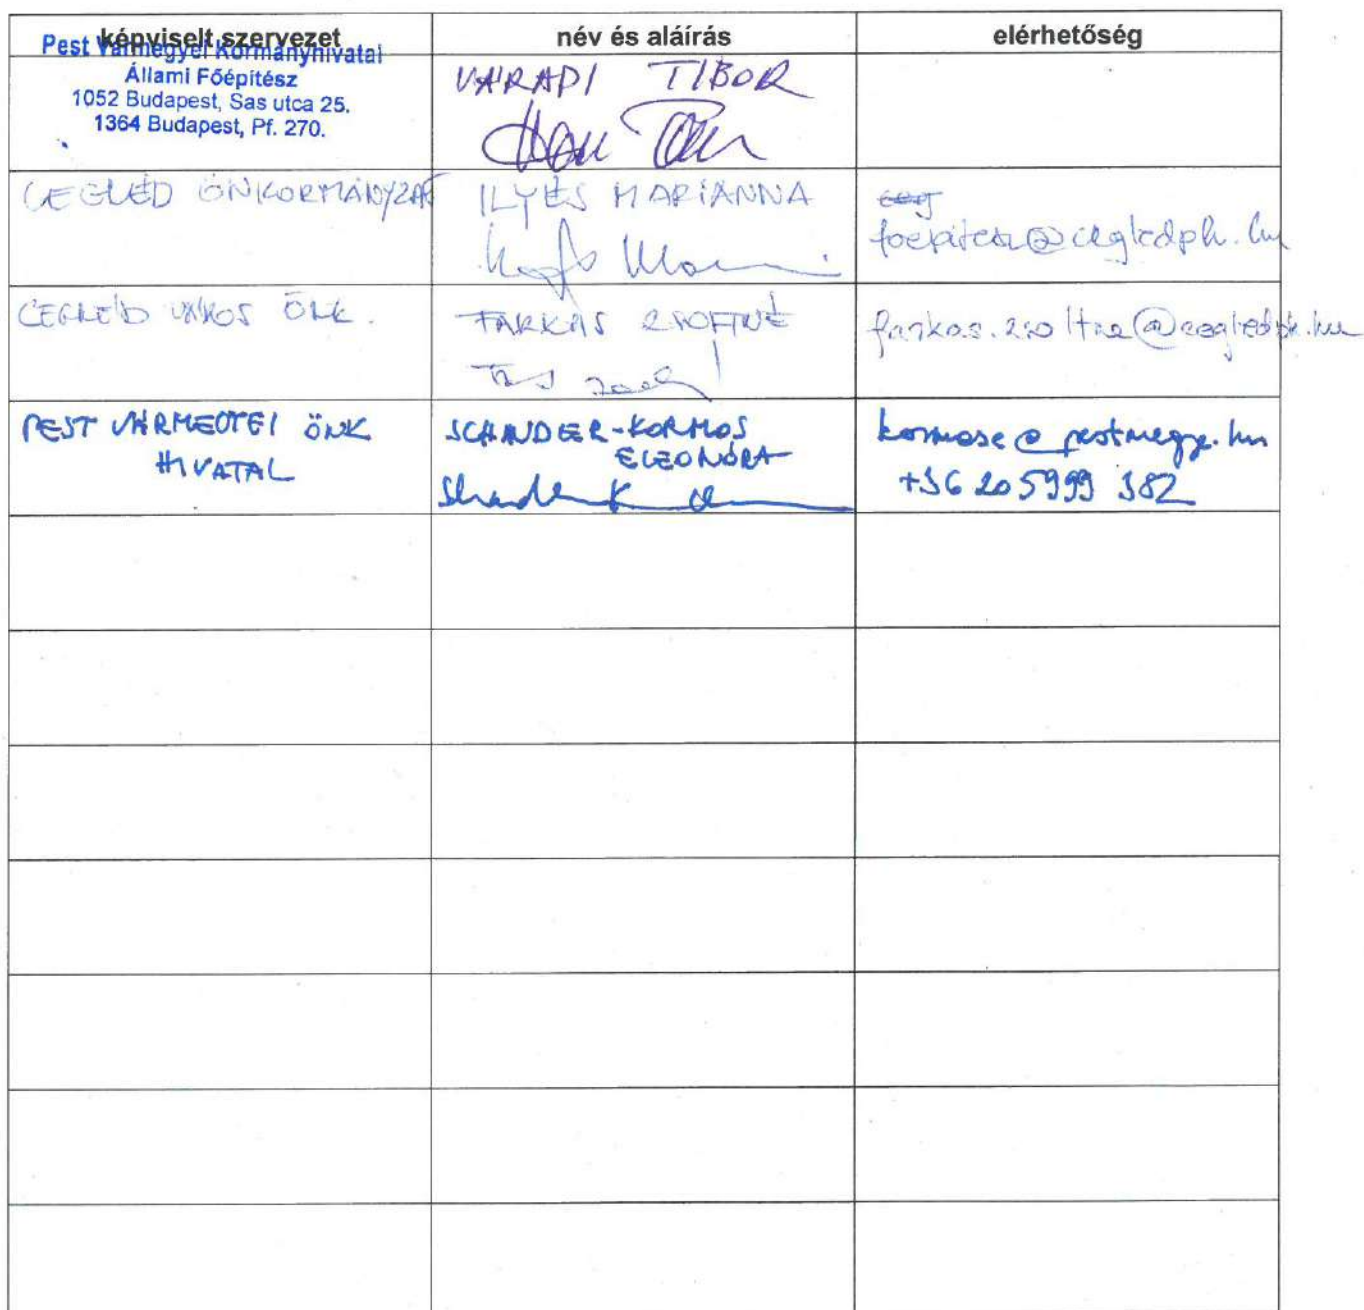 képviselt szervezet
név és aláírás
elérhetőség
Pest Vármegyei Kormányhivatal
Állami Főépítész
1052 Budapest, Sas utca 25.
1364 Budapest, Pf. 270.
VÁRADI TIBOR
CEGLÉD ÖNKORMÁNYZAT
ILYÉS MARIANNA
foepitesz@cegledph.hu
CEGLÉD VÁROS ÖNK.
FARKAS ZSOLTNÉ
farkas.zsoltne@cegledph.hu
PEST VÁRMEGYEI ÖNK
HIVATAL
SCHANDER-KORMOS
ELEONÓRA
kormose@pestmegye.hu
+36 20 5999 382